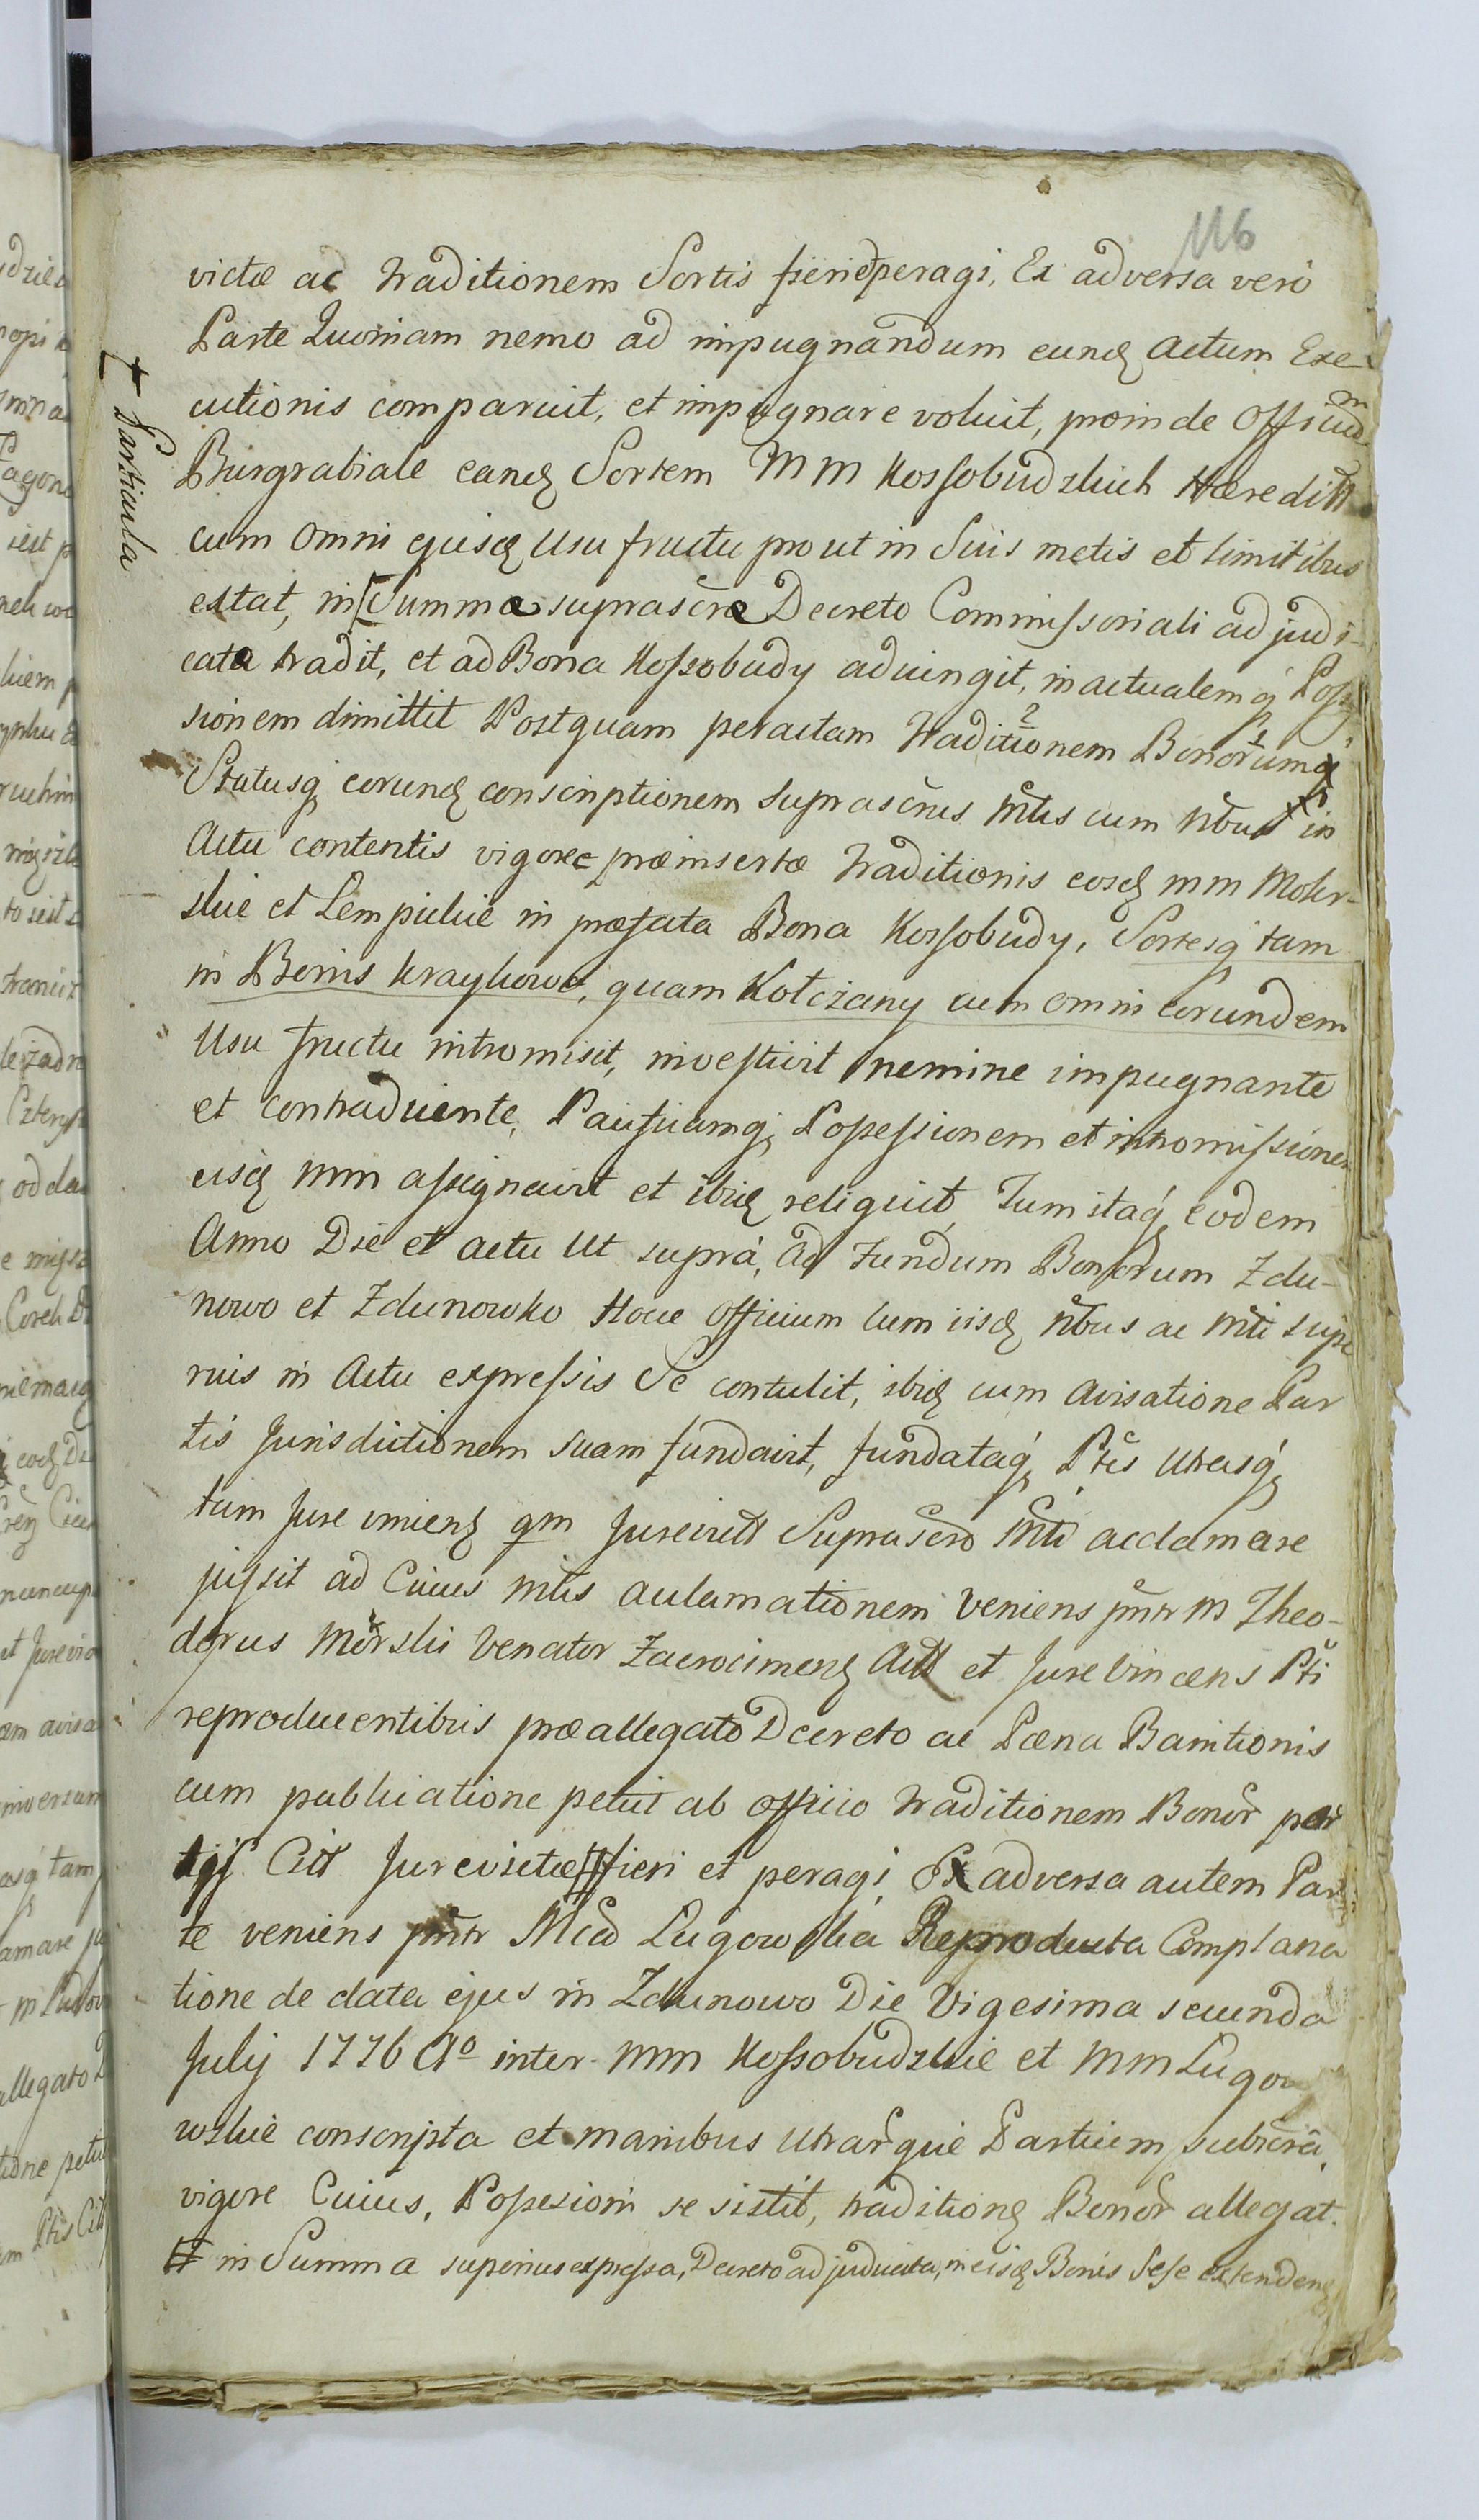 116
victæ ac traditionem Sortis fieri et peragi, Ex adversa vero
Parte Quoniam nemo ad impugnandum eundꝫ actum Exe-
cutionis comparuit, et impugnare voluit, proinde Officium
Burgrabiale eandꝫ Sortem MM Kossobudzkich Hæreditt
cum omni ejusdꝫ usu fructu prout in Suis metis et limitibus
extat, in Summa suprascrta Decreto Commissoriali adjudi-
cata tradit, et ad Bona Kossobudy adiungit, in actualemq́ Posses
sionem dimittit Postquam peractam traditionem Bonorumq́
Statusq́ eorundꝫ conscriptionem suprascriis Mtris cum Nbus in
Actu contentis vigore præinsertæ traditionis eosdꝫ MM Mokr-
skie et Lempickie in præfata Bona Kossobudy, Sortesq́ tam
in Bonis Kraykowo, quam Kołczany cum omni Eorundem
Usu fructu intromisit, investivit nemine impugnante
et contradicente, Pacificamq́ Possessionem et intromissionem
eisdꝫ MM assignavit et ibidꝫ reliquit, Tum itaq́ eodem
Anno Die et actu Ut suprà, ad Fundum Bonorum Zdu-
nowo et Zdunowko Hocce Officium cum iisdꝫ Nbus ac Mtri supe
rius in Actu expressis Se contulit, ibidꝫ cum avisatione Par
tis Jurisdictionem suam fundavit, fundataq́ Ptes Utrasq́
tam Jure vincenꝫ qm Jurevict Suprascro Mtri acclamare
jussit ad Cuius Mtris acclamationem veniens pnr M Theo-
dorus Morski Venator Zacrocimenꝫ Act et Jure vincens Pti
reproducentibus præallegato Decreto ac Pæna Banitionis
cum publicatione petiit ab officio traditionem Bonor per
Cit Jurevictæ fieri et peragi, Ex adversa autem Par
te veniens pnr Mcd Ługowska Reproducta Complana
tione de data ejus in Zdunowo Die Vigesima secunda
Julij 1776 Aº inter MM Kossobudzkie et MM Ługo
wskie conscripta et manibus Utrarque Partium subscra
vigore Cuius, Possesioni se sistit, traditionꝫ Bonor allegat.
# in Summa superius expressa, Decreto adjudicata, in eisdꝫ Bonis Sese extendenꝫ
Particula